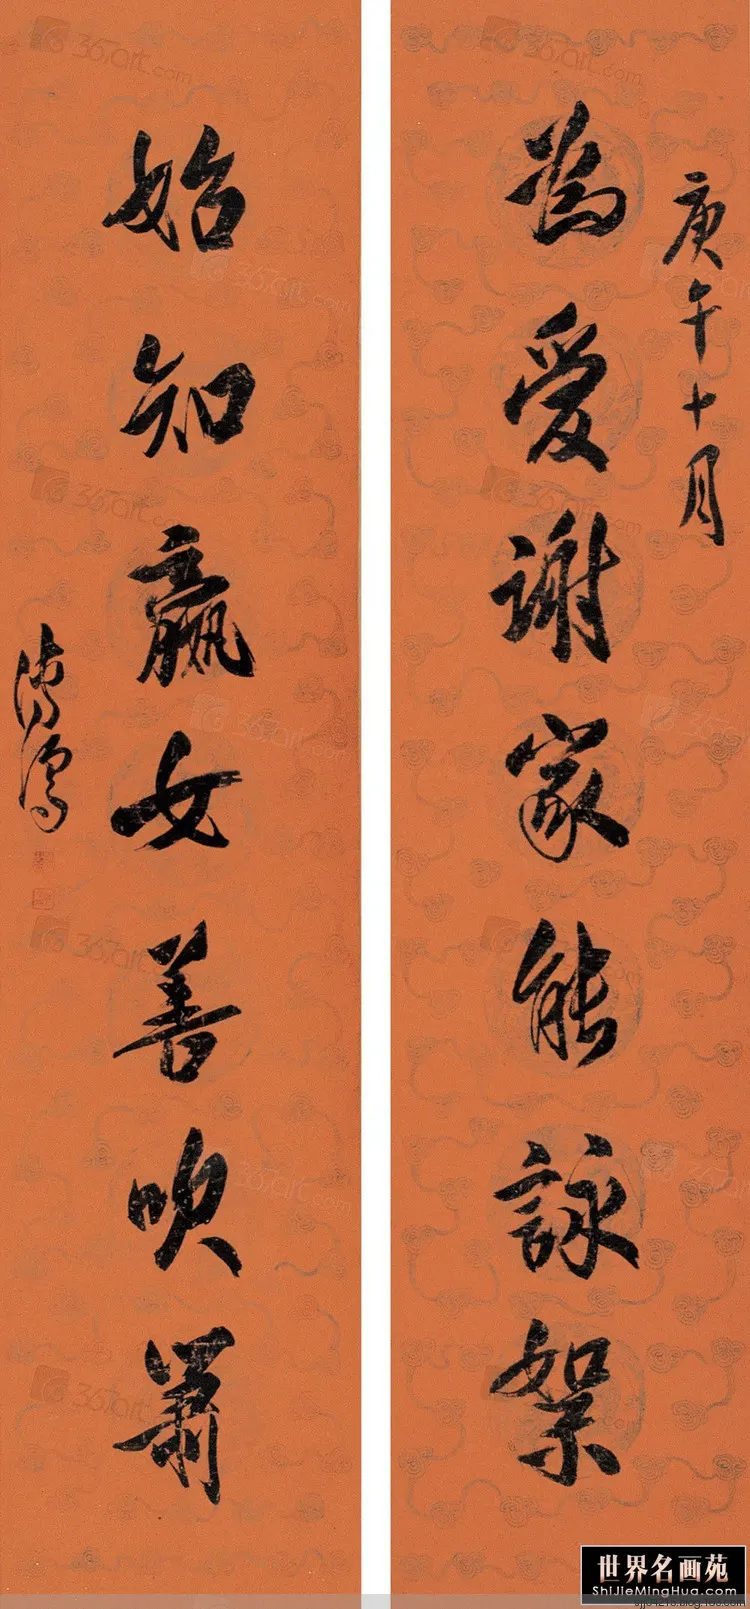 庚午十月
為愛謝家能詠絮
始知嬴女善吹簫
溥儒
365art.com
世界名画苑
ShiJieMingHua.com